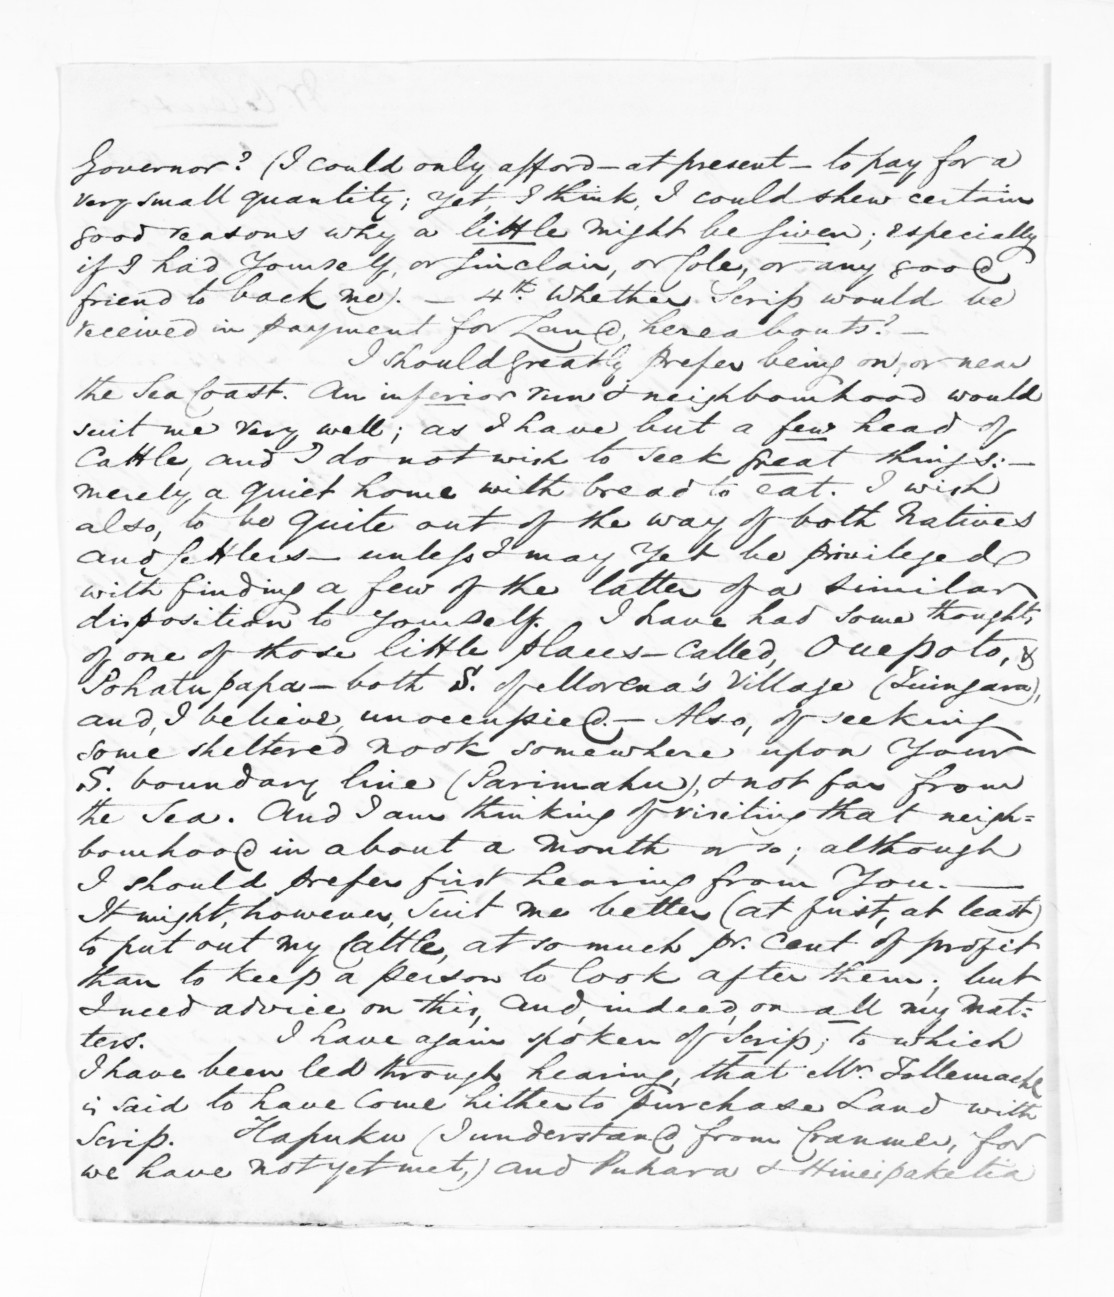 Governor? (I could only afford—at present—to pay for a
very small quantity; yet I think, I could shew certain
good reasons why a little might be given; especially
if I had Yourself, or Sinclair, or Cole, or any good
friend to back me). — 4th. Whether Scrip would be
received in payment for Land, hereabouts? —
I should greatly prefer being on, or near
the Sea Coast. An inferior run & neighbourhood would
suit me very well; as I have but a few head of
Cattle, and I do not wish to seek great things:—
merely a quiet home with bread to eat. I wish
also, to be quite out of the way of both Natives
and Settlers— unless I may yet be privileged
with finding a few of the latter of a similar
disposition to Yourself. I have had some thoughts
of one of those little places—called, Ouepoto, &
Pohatupapa—both S. of Morena's Village (Tuingara),
and, I believe, unoccupied.— Also, of seeking
some sheltered nook somewhere upon Your
S. boundary line (Parimahu), & not far from
the Sea. And I am thinking of visiting that neigh=
bourhood in about a month or so; although
I should prefer first hearing from You.—
It might, however, suit me better (at first, at least)
to put out my Cattle, at so much pr. cent of profit
than to keep a person to look after them; but
I need advice on this, and, indeed, on all my mat=
ters. I have again spoken of Scrip; to which
I have been led through hearing, that Mr. Tollemache
is said to have come hither to purchase Land with
Scrip. Hapuku (I understand from Cranmer, for
we have not yet met,) and Puhara & Hineipaketia